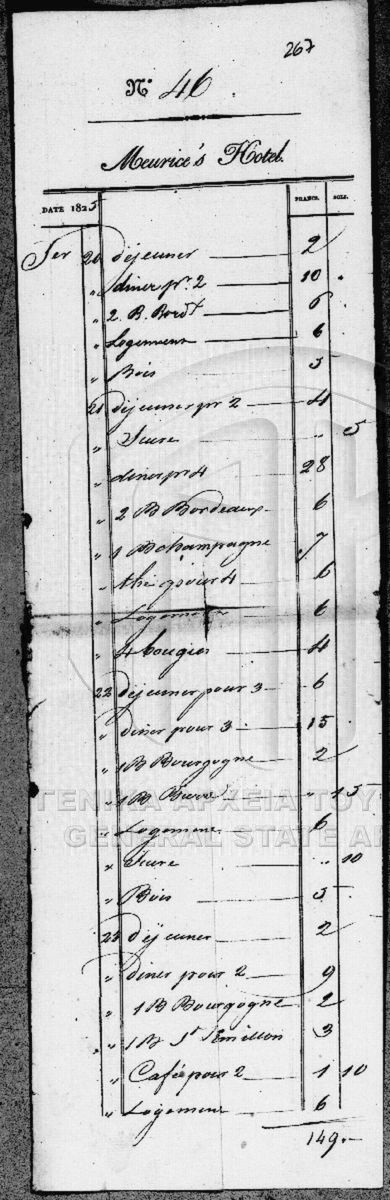 267
No. 46
Meurice's Hotel.
DATE 1825 FRANCS. SOLS.
Fer 20 déjeuner 2
" diner pr. 2 10
" 2. B. Bordx 6
" Logement 6
" Bois 5
21 déjeuner pr 2 4
" Sucre " 5
" diner pr 4 28
" 2 B Bordeaux 6
" 1 B champagne 7
" thé pour 4 6
" Logement 6
" 4 bougies 4
22 déjeuner pour 3 6
" diner pour 3 15
" 1 B Bourgogne 2
" 1 B Bierre " 15
" Logement 6
" Sucre " 10
" Bois 5
23 déjeuner 2
" diner pour 2 9
" 1 B Bourgogne 2
" 1 B St Emillion 3
" Café pour 2 1 10
" Logement 6
149.-
ΓΕΝΙΚΑ ΑΡΧΕΙΑ ΤΟΥ
GENERAL STATE A